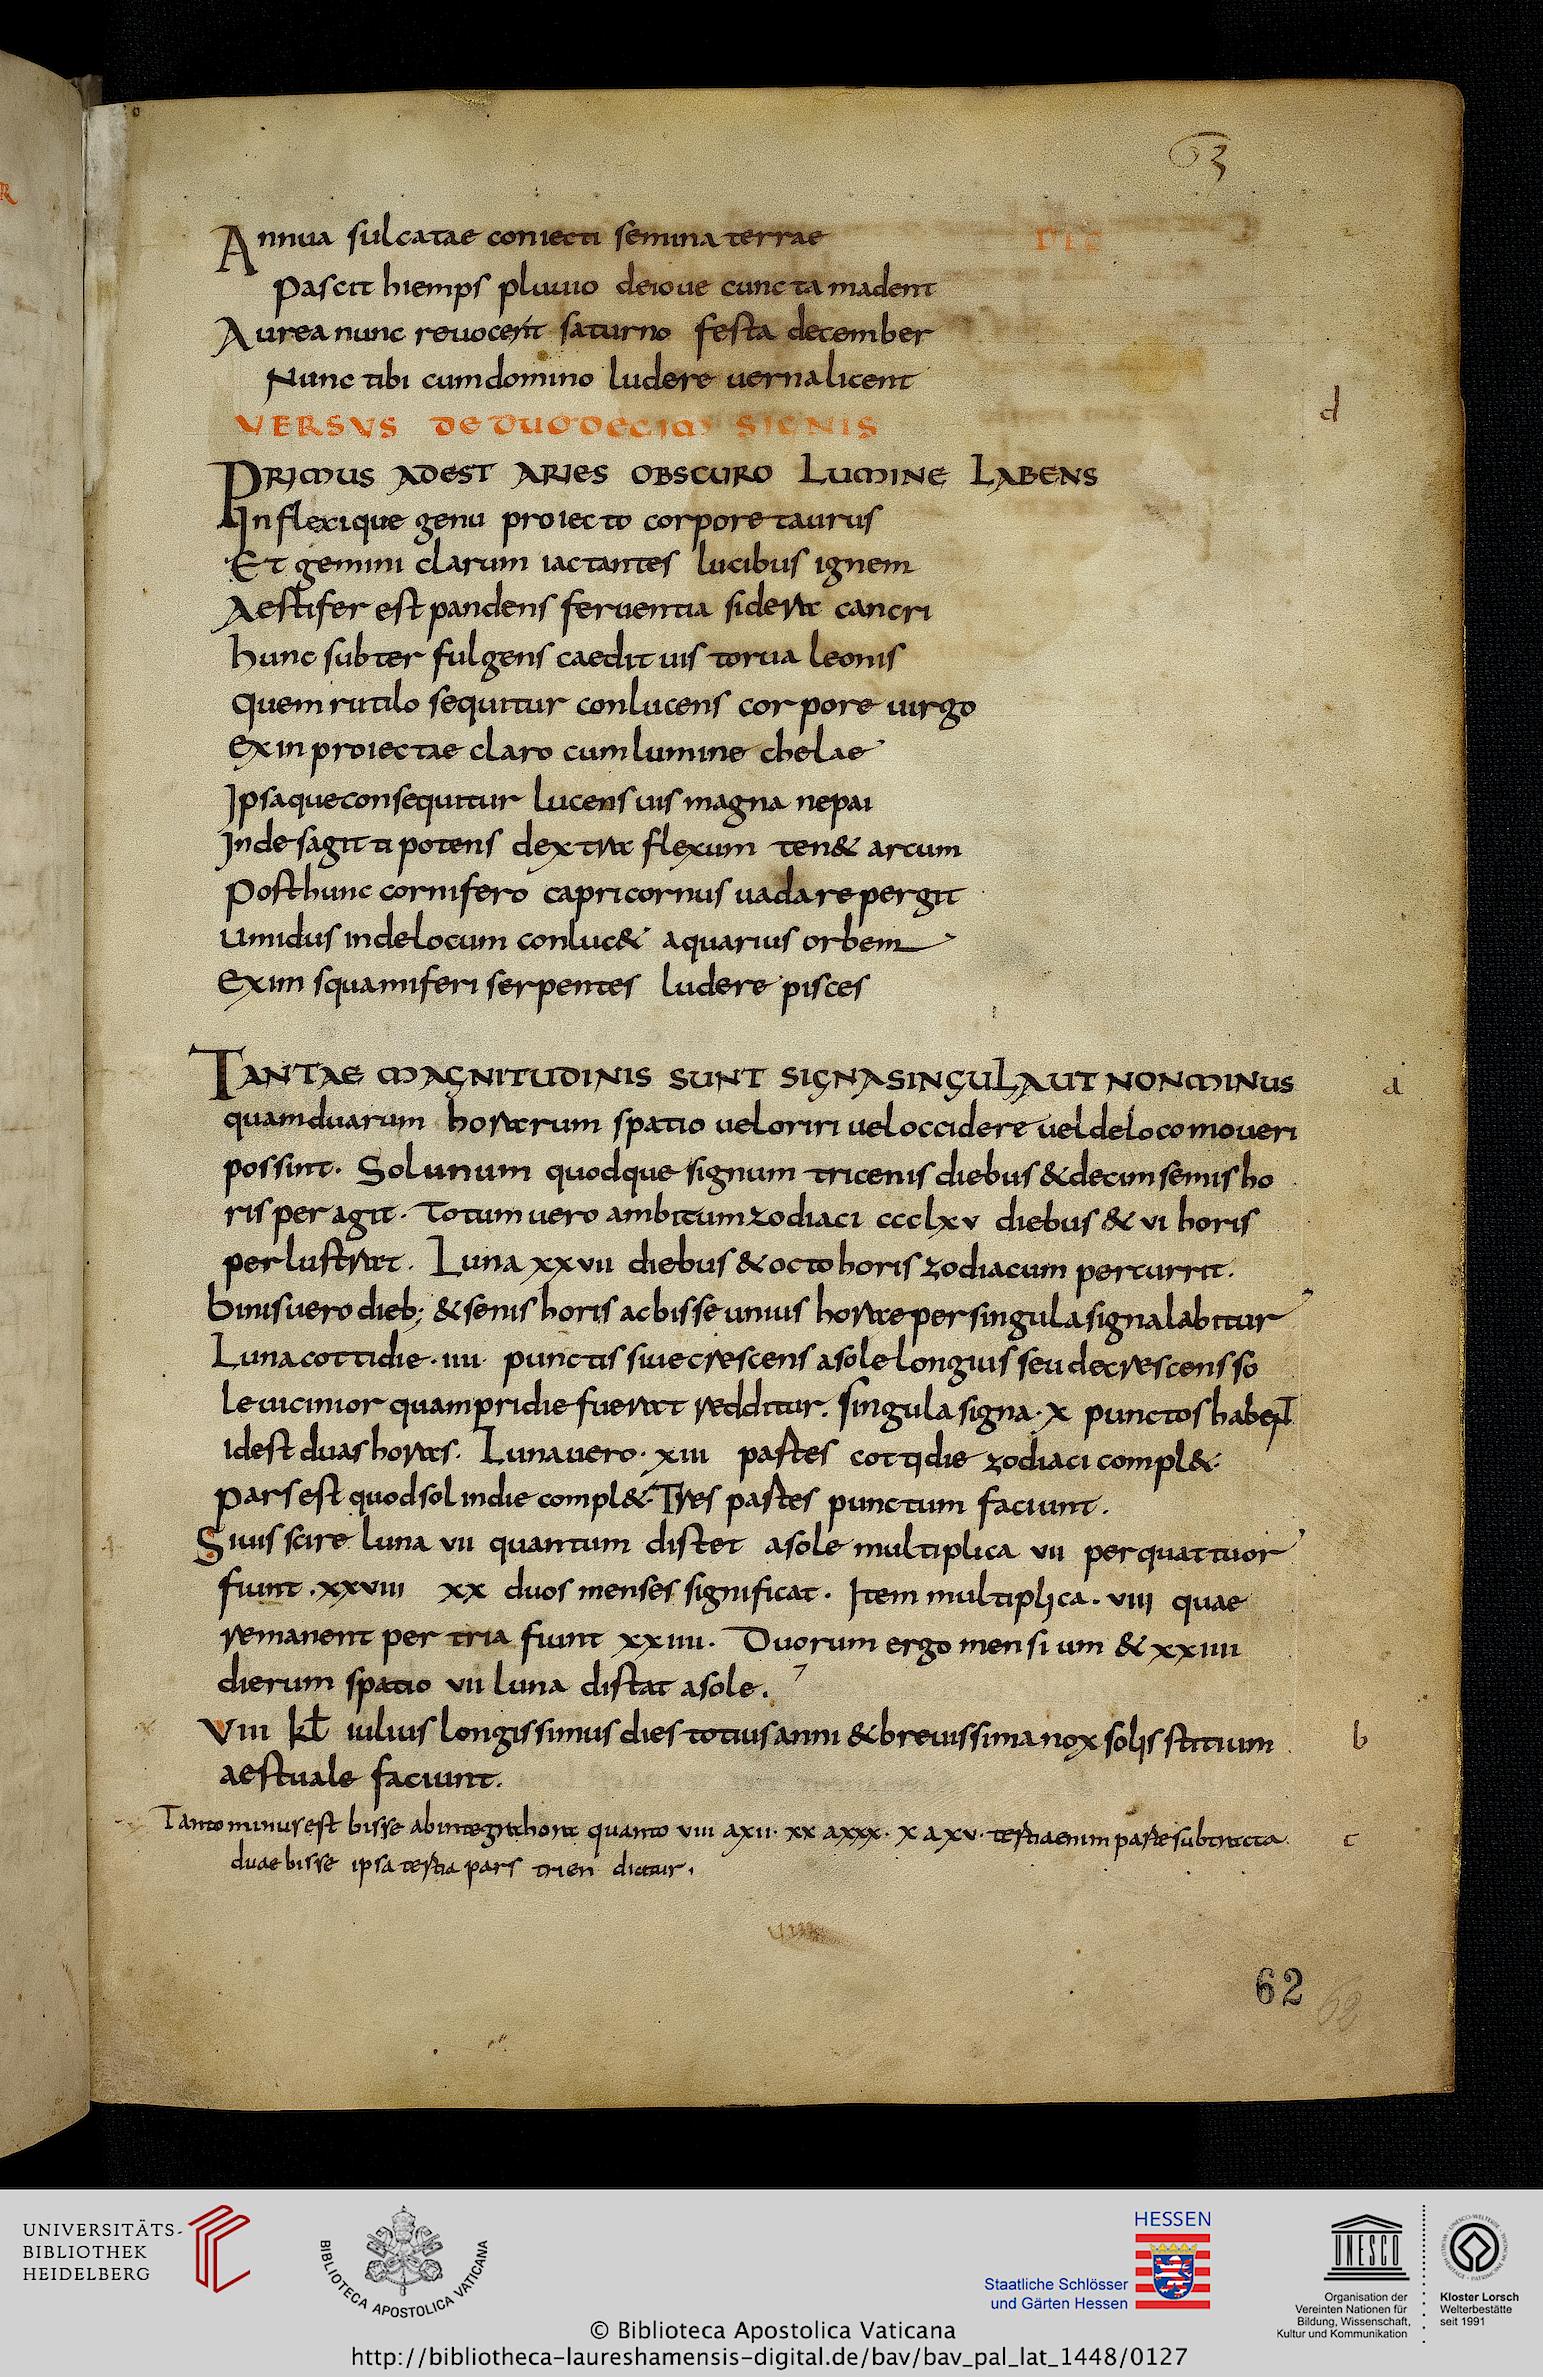 63
Annua sulcatae coniecti semina terrae
DEC
Pascit hiemps pluuio deioue cuncta madent
Aurea nunc reuocent saturno festa december
Nunc tibi cumdomino ludere uernalicent
d
VERSVS DEDUODECIM SIGNIS
PRIMUS ADEST ARIES OBSCURO LUMINE LABENS
Inflexique genu proiecto corpore taurus
Et gemini clarum iactantes lucibus ignem
Aestifer est pandens feruentia sidera cancri
hunc subter fulgens caedit uis torua leonis
quem rutilo sequitur conlucens corpore uirgo
exin proiectae claro cumlumine chelae
Ipsaqueconsequitur lucens uis magna nepai
Inde sagitti potens dextra flexum ten& arcum
posthunc cornifero capricornus uadare pergit
umidus indelocum conluc& aquarius orbem
Exim squamiferi serpentes ludere pisces
TANTAE MAGNITUDINIS SUNT SIGNASINGULAUT NONMINUS
a
quamduarum horarum spatio ueloriri ueloccidere ueldelocomoueri
possint. Solunum quodque signum tricenis diebus &decimsemis ho
ris per agit. Totumuero ambitumzodiaci ccclxv diebus & vi horis
perlustrat. Luna xxvii diebus &octohoris zodiacum percurrit.
binisuero dieb; &senis horis acbisse unius horae persingulasignalabitur
Lunacottidie · iiii · punctis siuecrescens asolelongius seu decrescens so
leuicinior quampridie fuerat redditur. singula signa · x punctos habent
idest duas horas. Lunauero · xiii partes cottidie zodiaci compl&.
pars est quodsol indie compl&. Tres partes punctum faciunt.
Siuis scire luna vii quantum distet asole multiplica vii perquattuor
fiunt · xxviii xx duos menses significat. Item multiplica · viii quae
remanent per tria fiunt xxiiii. Duorum ergo mensium & xxiiii
dierum spatio vii luna distat asole.
Viii kl iulius longissimus dies totiusanni &breuissimanox solis stitium
b
aestuale faciunt.
Tantominusest bisse abintegrahora quanto viii axii · xx axxx · x axv · tertiaenim partesubtracta
c
duaebisse ipsa tertia pars trien dicitur.
62
62
UNIVERSITÄTS-
BIBLIOTHEK
HEIDELBERG
BIBLIOTECA APOSTOLICA VATICANA
HESSEN
Staatliche Schlösser
und Gärten Hessen
UNESCO
Organisation der
Vereinten Nationen für
Bildung, Wissenschaft,
Kultur und Kommunikation
Kloster Lorsch
Welterbestätte
seit 1991
© Biblioteca Apostolica Vaticana
http://bibliotheca-laureshamensis-digital.de/bav/bav_pal_lat_1448/0127